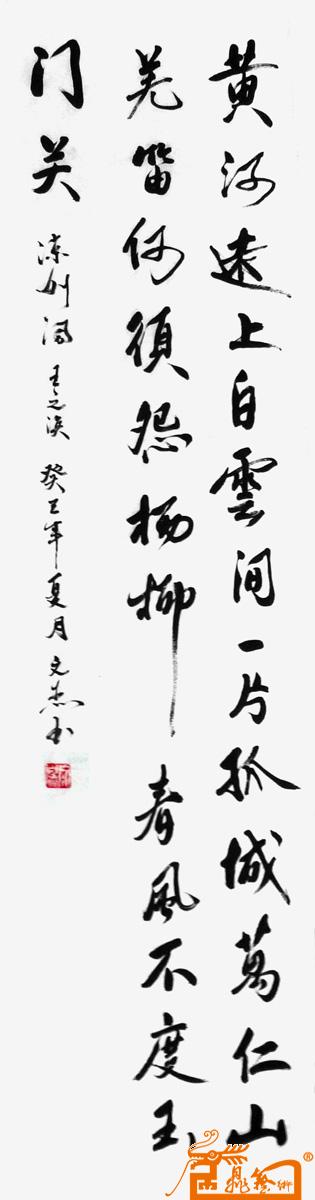 黄河遠上白雲间一片孤城萬仁山
羌笛何須怨杨柳春風不度玉
门关
涼州詞王之涣癸巳年夏月文杰书